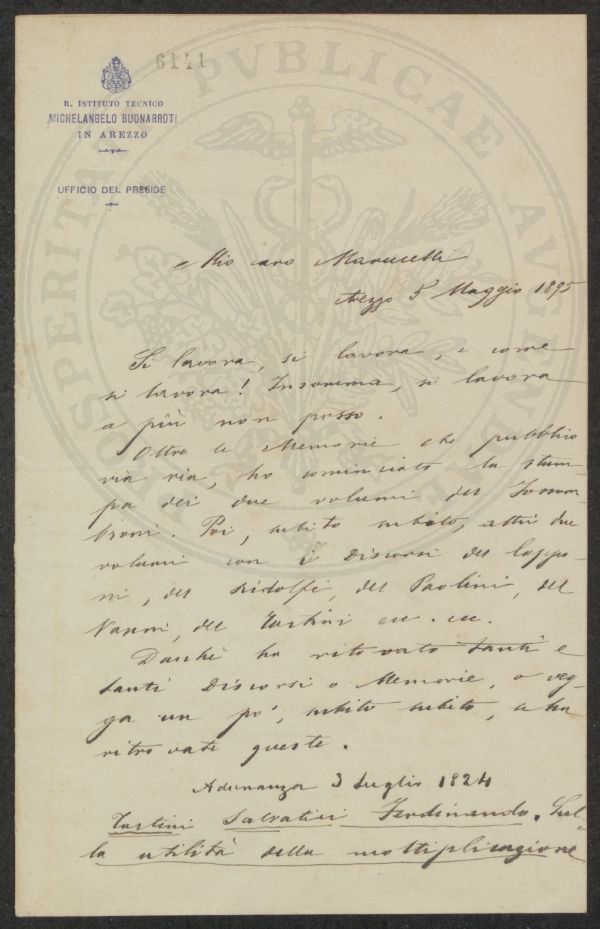 6141
R. ISTITUTO TECNICO
MICHELANGELO BUONARROTI
IN AREZZO
UFFICIO DEL PRESIDE
PROSPERITATI PVBLICAE AVGENDAE
Mio caro Marucelli
Arezzo 5 Maggio 1895
Si lavora, si lavora, e come
si lavora! Insomma, si lavora
a più non posso.
Oltre le Memorie che pubblico
via via, ho cominciato la stam-
pa dei due volumi del Fossom-
broni. Poi, subito subito, altri due
volumi con i Discorsi del Cappo-
ni, del Ridolfi, del Paolini, del
Vanni, del Tartini ecc. ecc.
Dacchè ha ritrovato tanti e
tanti Discorsi o Memorie, o veg-
ga un po', subito subito, se ha
ritrovate queste.
Adunanza 3 Luglio 1824
Tartini Salvatici Ferdinando. Sul-
la utilità della moltiplicazione